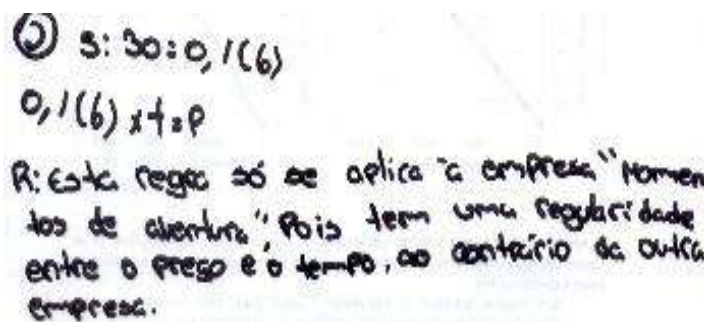 5: 30=0,1(6)
0,1(6) x t = P
R: Esta regra só se aplica à empresa "Momen
tos de aventura", Pois tem uma regularidade
entre o preço e o tempo, ao contrário da outra
empresa.